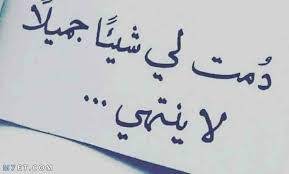 دُمت لي شيئًا جميلًا
لا ينتهي ...
MQYET.COM